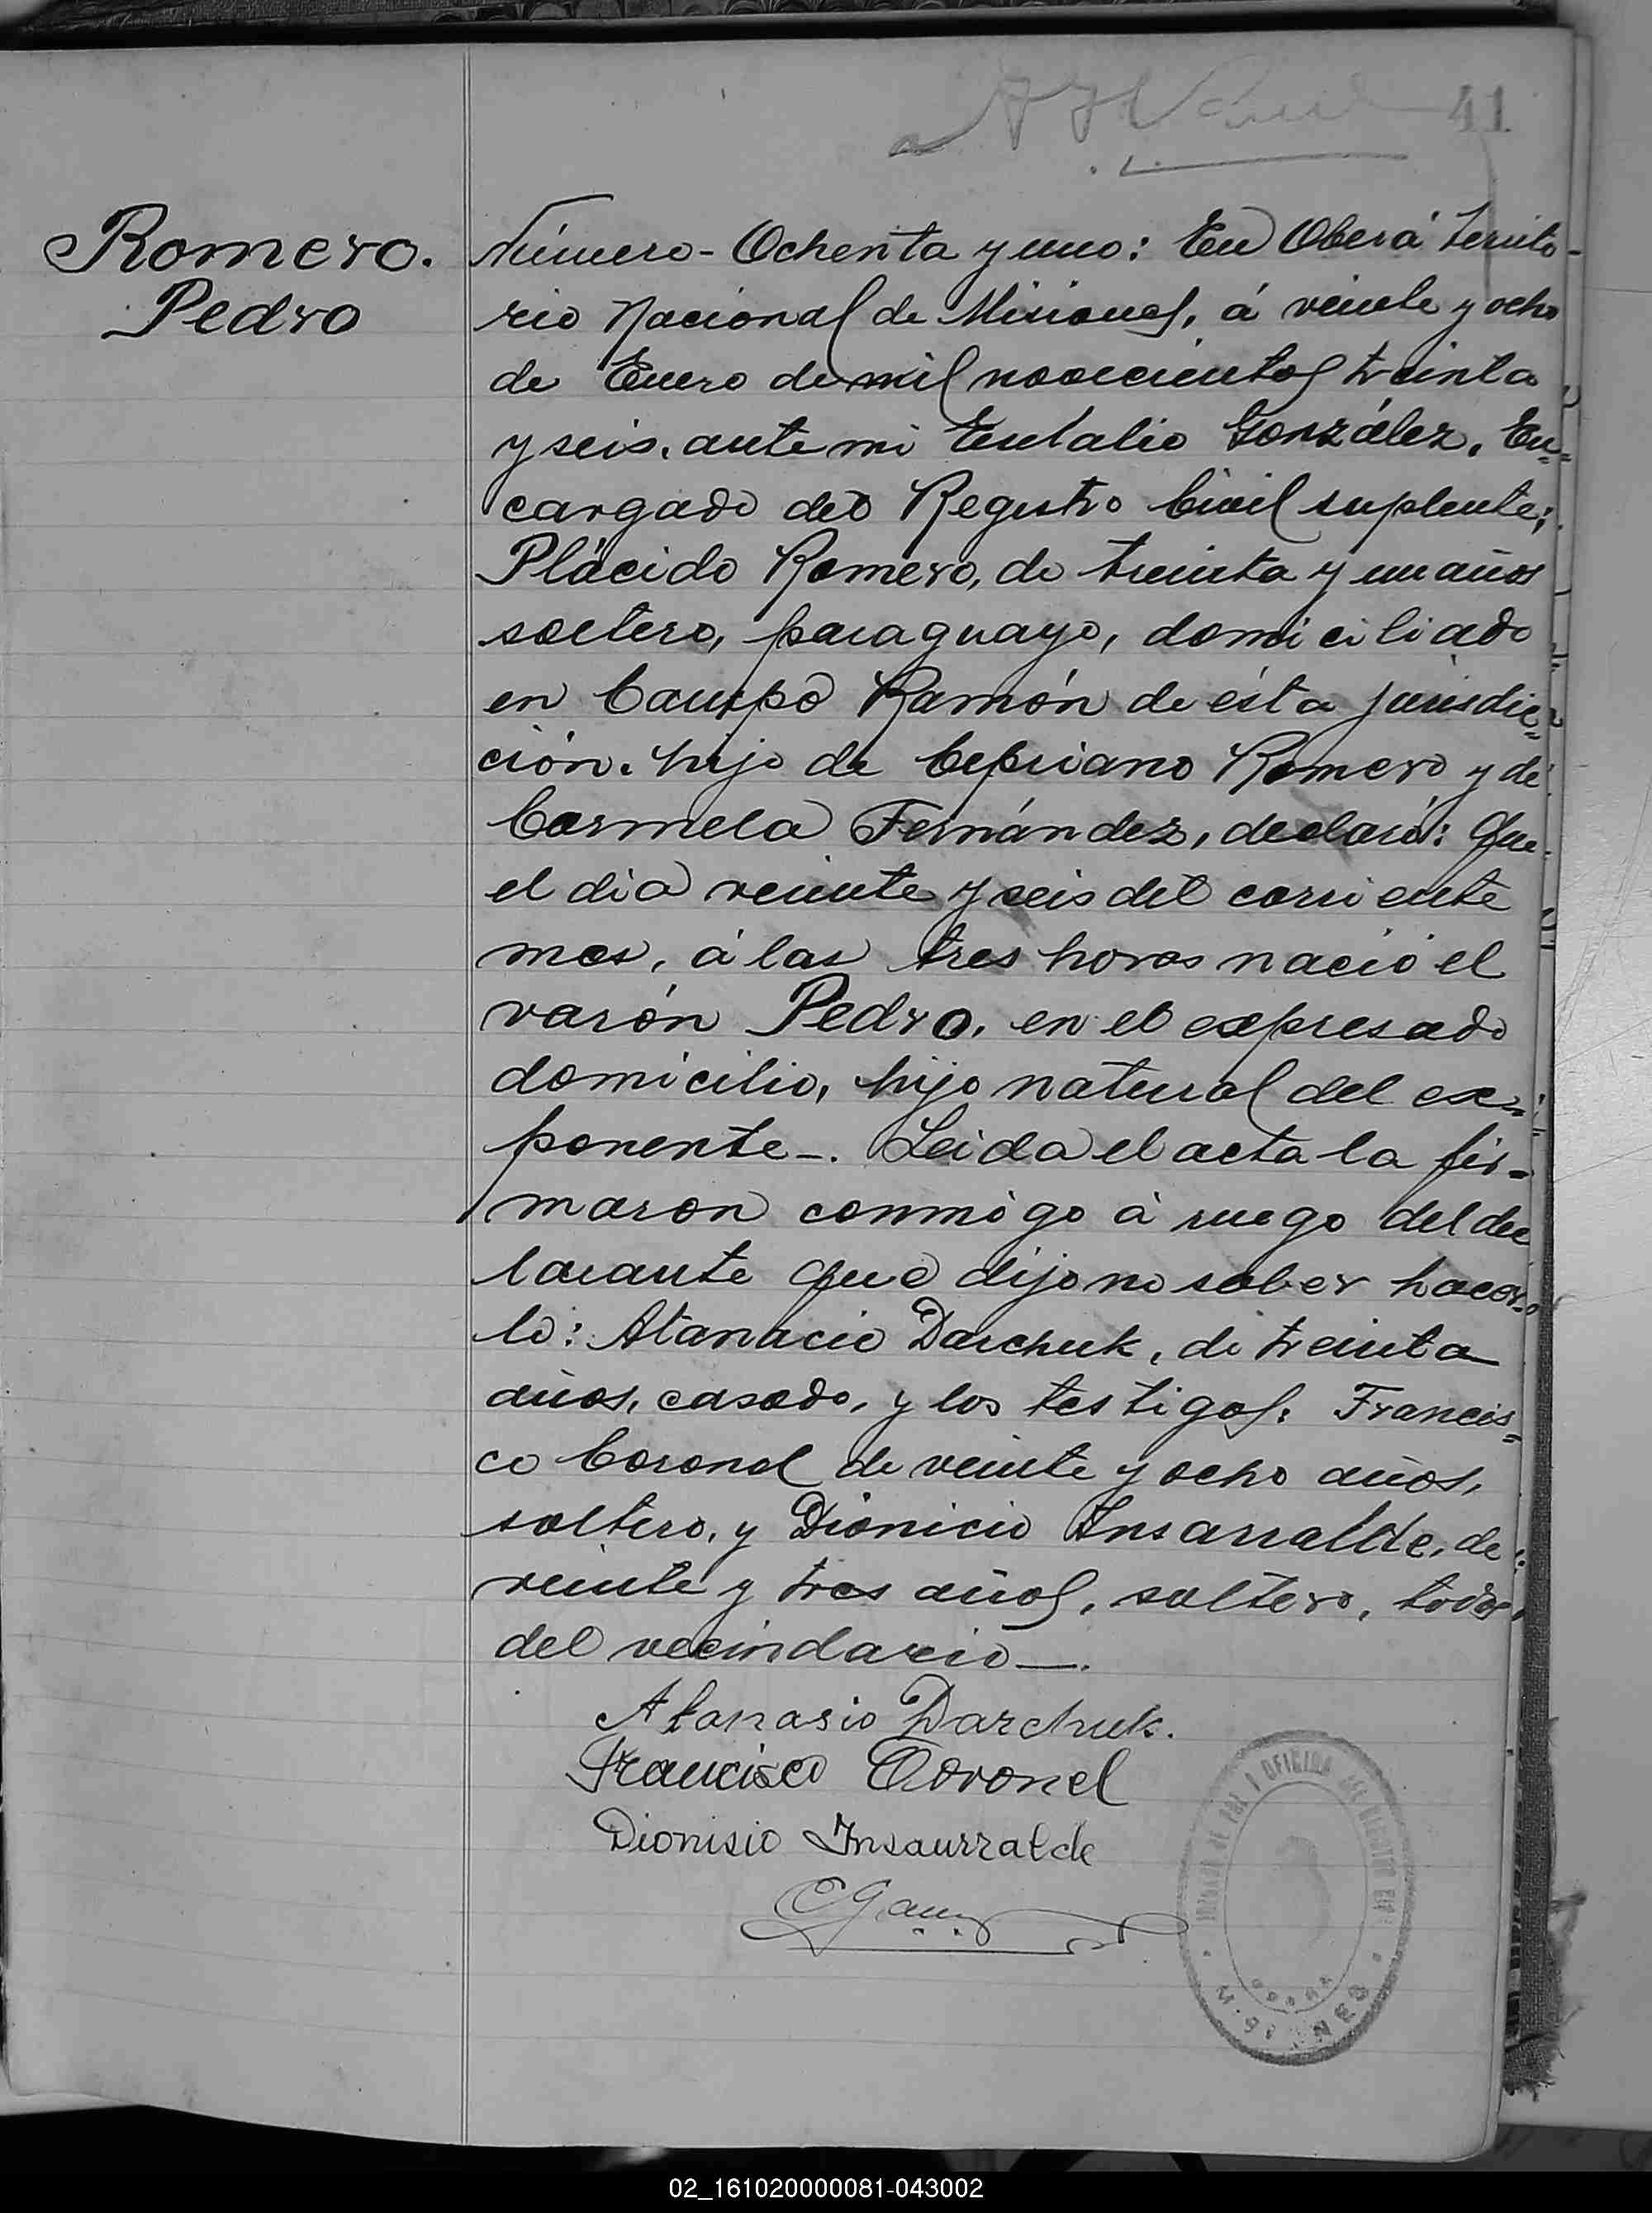 41
Romero.
Pedro
Número - Ochenta y uno: En Oberá Territo-
rio Nacional de Misiones, á veinte y ocho
de Enero de mil novecientos treinta
y seis, ante mi Eulalio González, En=
cargado del Registro Civil suplente;
Plácido Romero, de treinta y un años
soltero, paraguayo, domiciliado
en Campo Ramón de ésta jurisdic=
ción. hijo de Cepriano Romero y de
Carmela Fernández, declaró: Que
el dia veinte y seis del corriente
mes, á las tres horas nació el
varón Pedro, en el expresado
domicilio, hijo natural del ex=
ponente-. Leida el acta la fir=
maron conmigo á ruego del dec
larante que dijo no saber hacer=
lo: Atanacio Darchuk, de treinta
años, casado, y los testigos: Francis=
co Coronel de veinte y ocho años,
soltero, y Dionicio Insarralde, de
veinte y tres años, soltero, todos
del vecindario-.
Atanasio Darchuk.
Francisco Coronel
Dionisio Insaurralde
02_161020000081-043002